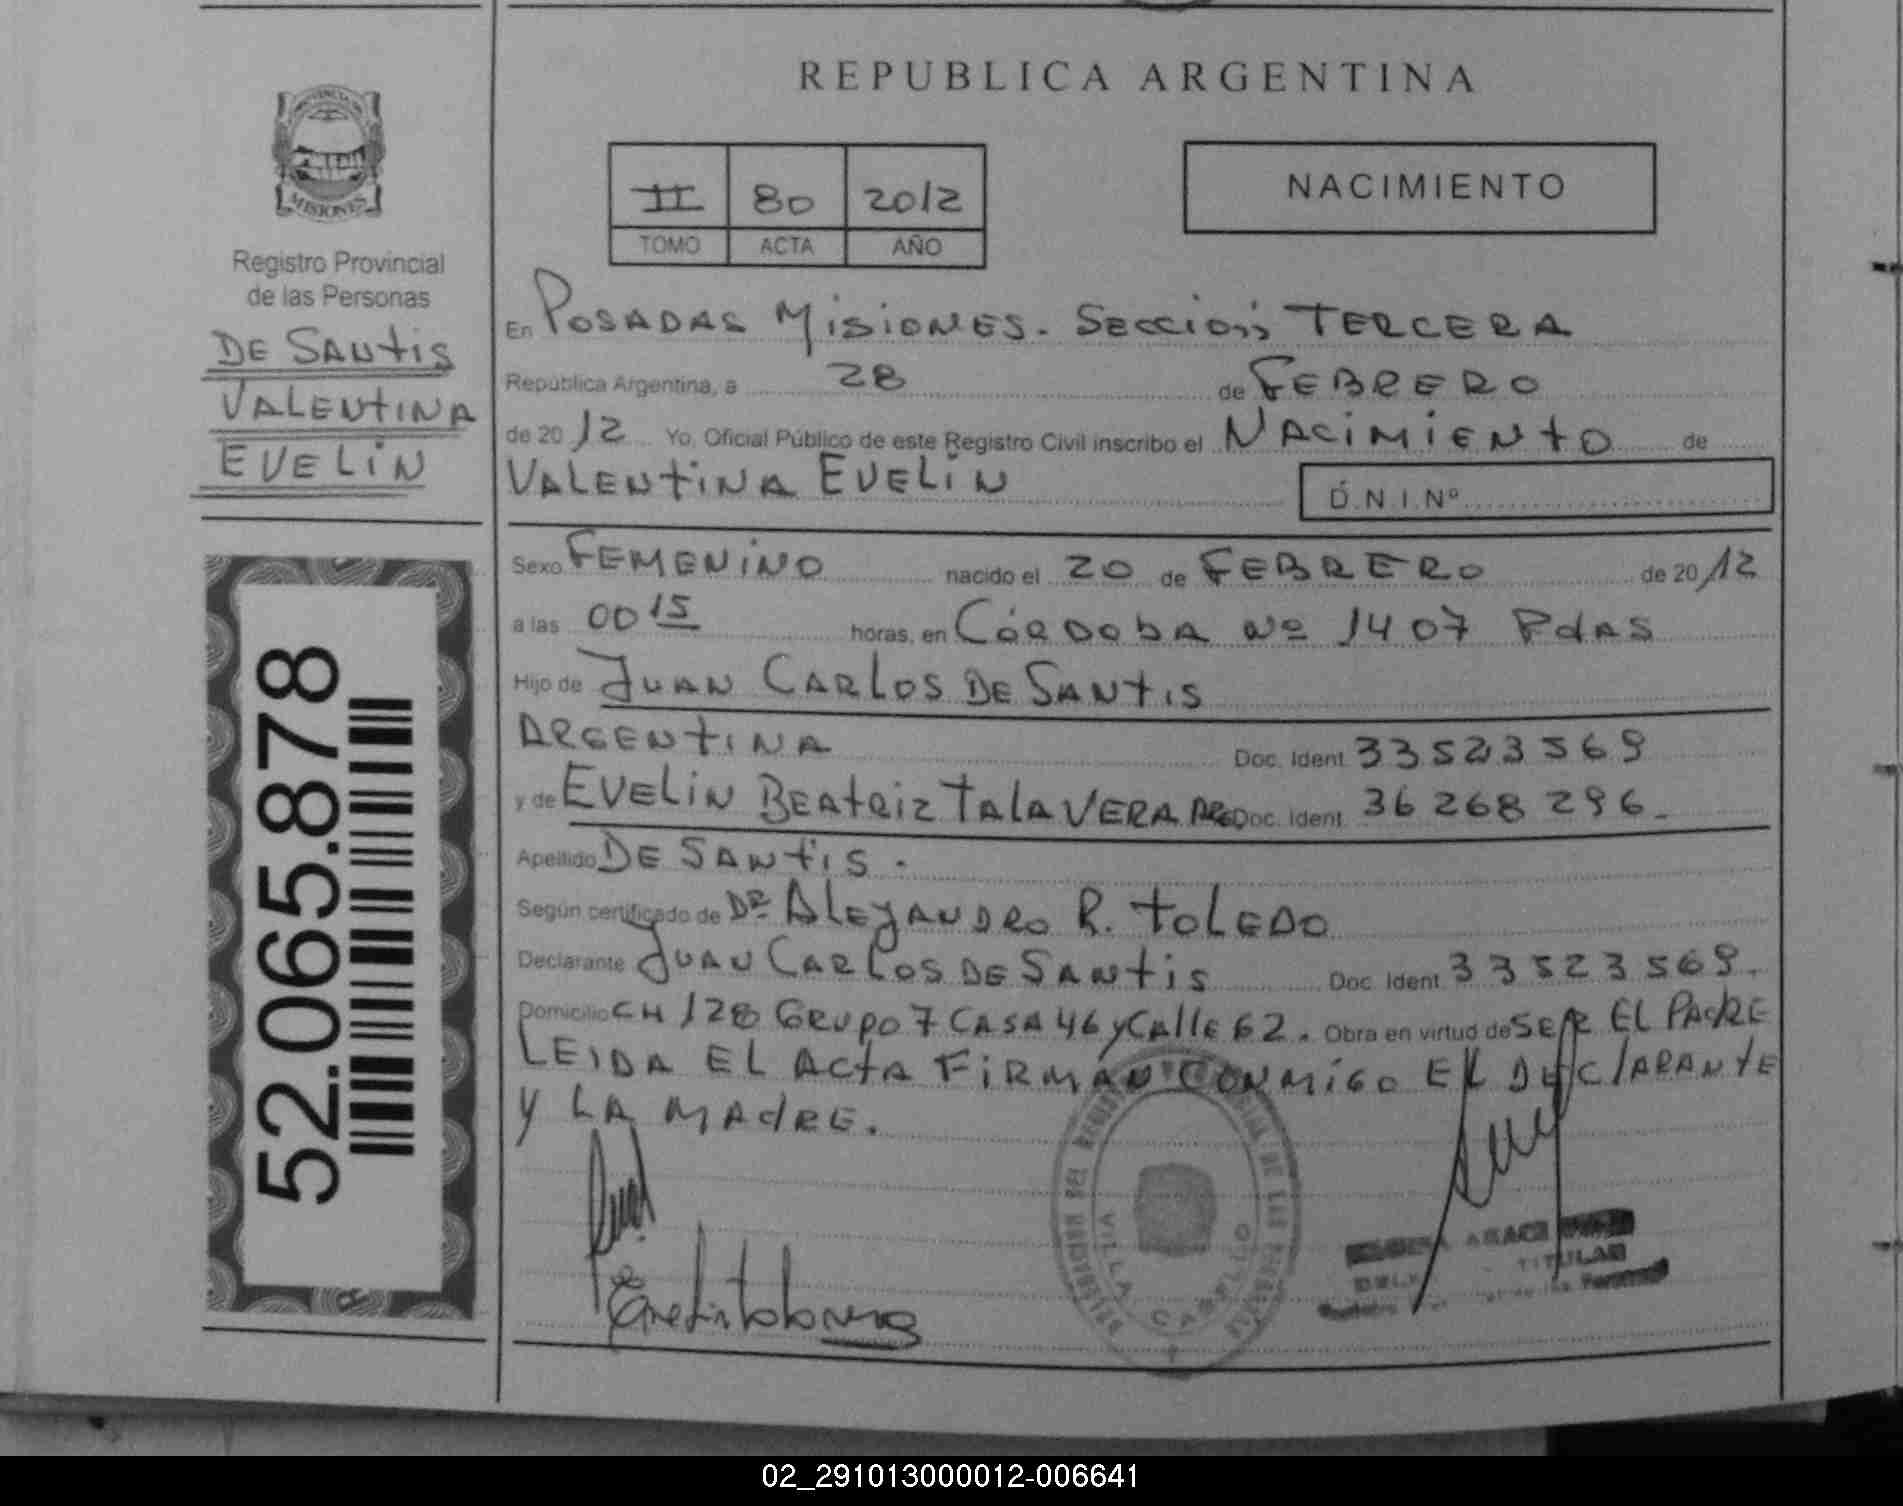 REPUBLICA ARGENTINA
PROVINCIA DE
MISIONES
Registro Provincial
de las Personas
DE SANTIS
VALENTINA
EVELIN
52.065.878
II 80 2012
TOMO ACTA AÑO
NACIMIENTO
En POSADAS MISIONES. SECCION TERCERA
República Argentina, a 28 de FEBRERO
de 2012 Yo, Oficial Público de este Registro Civil inscribo el NACIMIENTO de
VALENTINA EVELIN D.N.I.Nº
Sexo FEMENINO nacido el 20 de FEBRERO de 2012
a las 00 15 horas, en CÓRDOBA Nº 1407 PdAS
Hijo de JUAN CARLOS DE SANTIS
ARGENTINA Doc. Ident. 33523569
y de EVELIN BEATRIZ TALAVERA ARG Doc. Ident. 36268296.
Apellido DE SANTIS.
Según certificado de DR ALEJANDRO R. TOLEDO
Declarante JUAN CARLOS DE SANTIS Doc. Ident. 33523569.
Domicilio CH 128 GRUPO 7 CASA 46 y CALLE 62. Obra en virtud de SER EL PADRE
LEIDA EL ACTA FIRMAN CONMIGO EL DECLARANTE
Y LA MADRE.
VILLA CABELLO
TITULAR
02_291013000012-006641